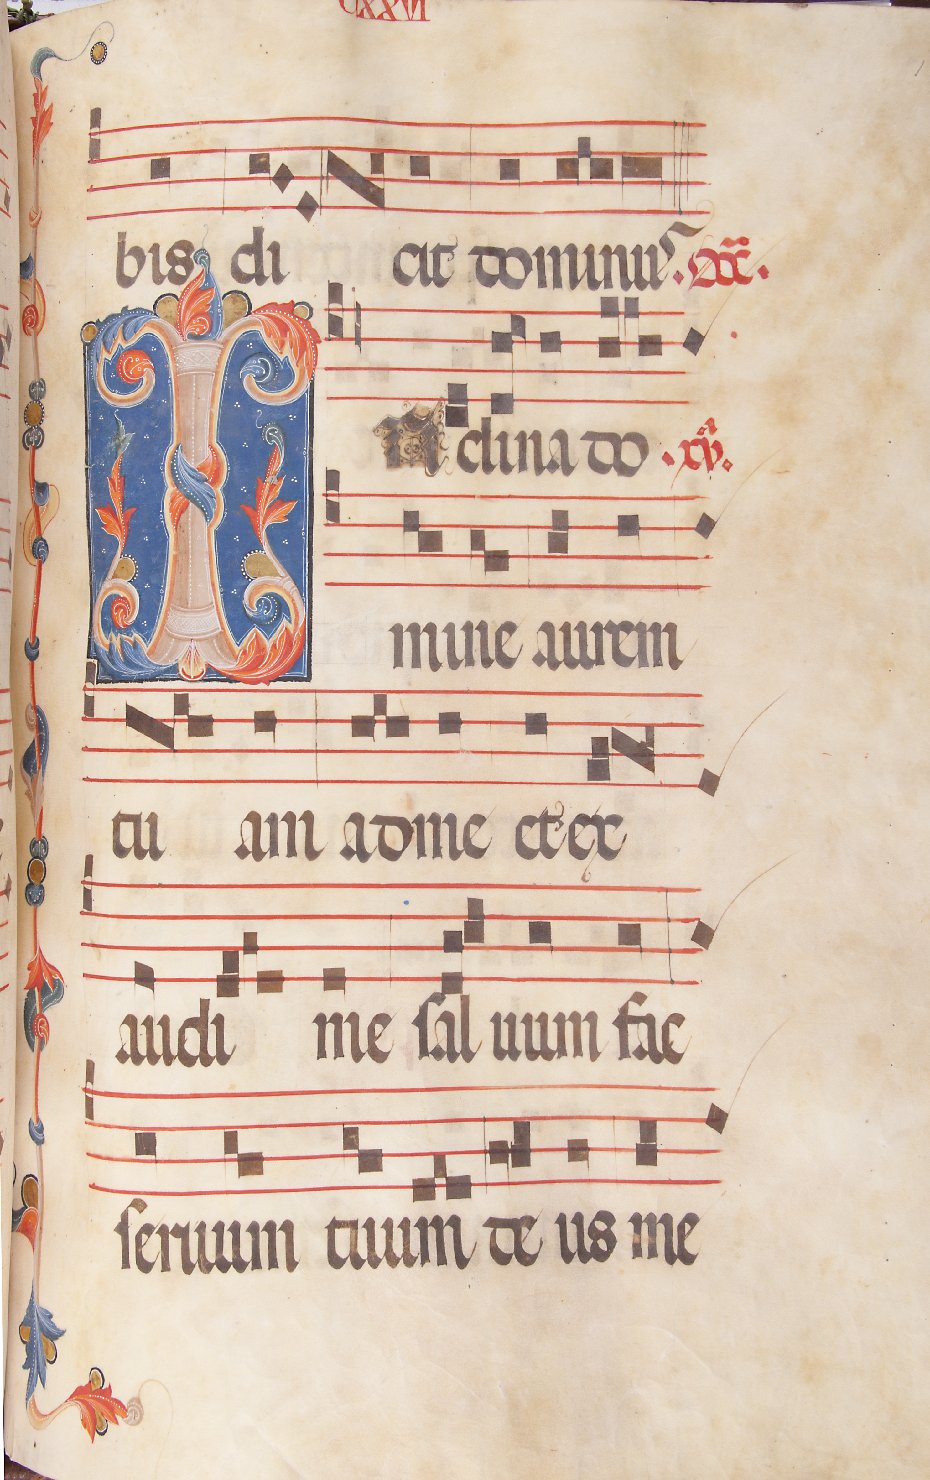 CXXVI
bis di cit dominus.
INclina do
mine aurem
tu am ad me et ex
audi me sal uum fac
seruum tuum de us me